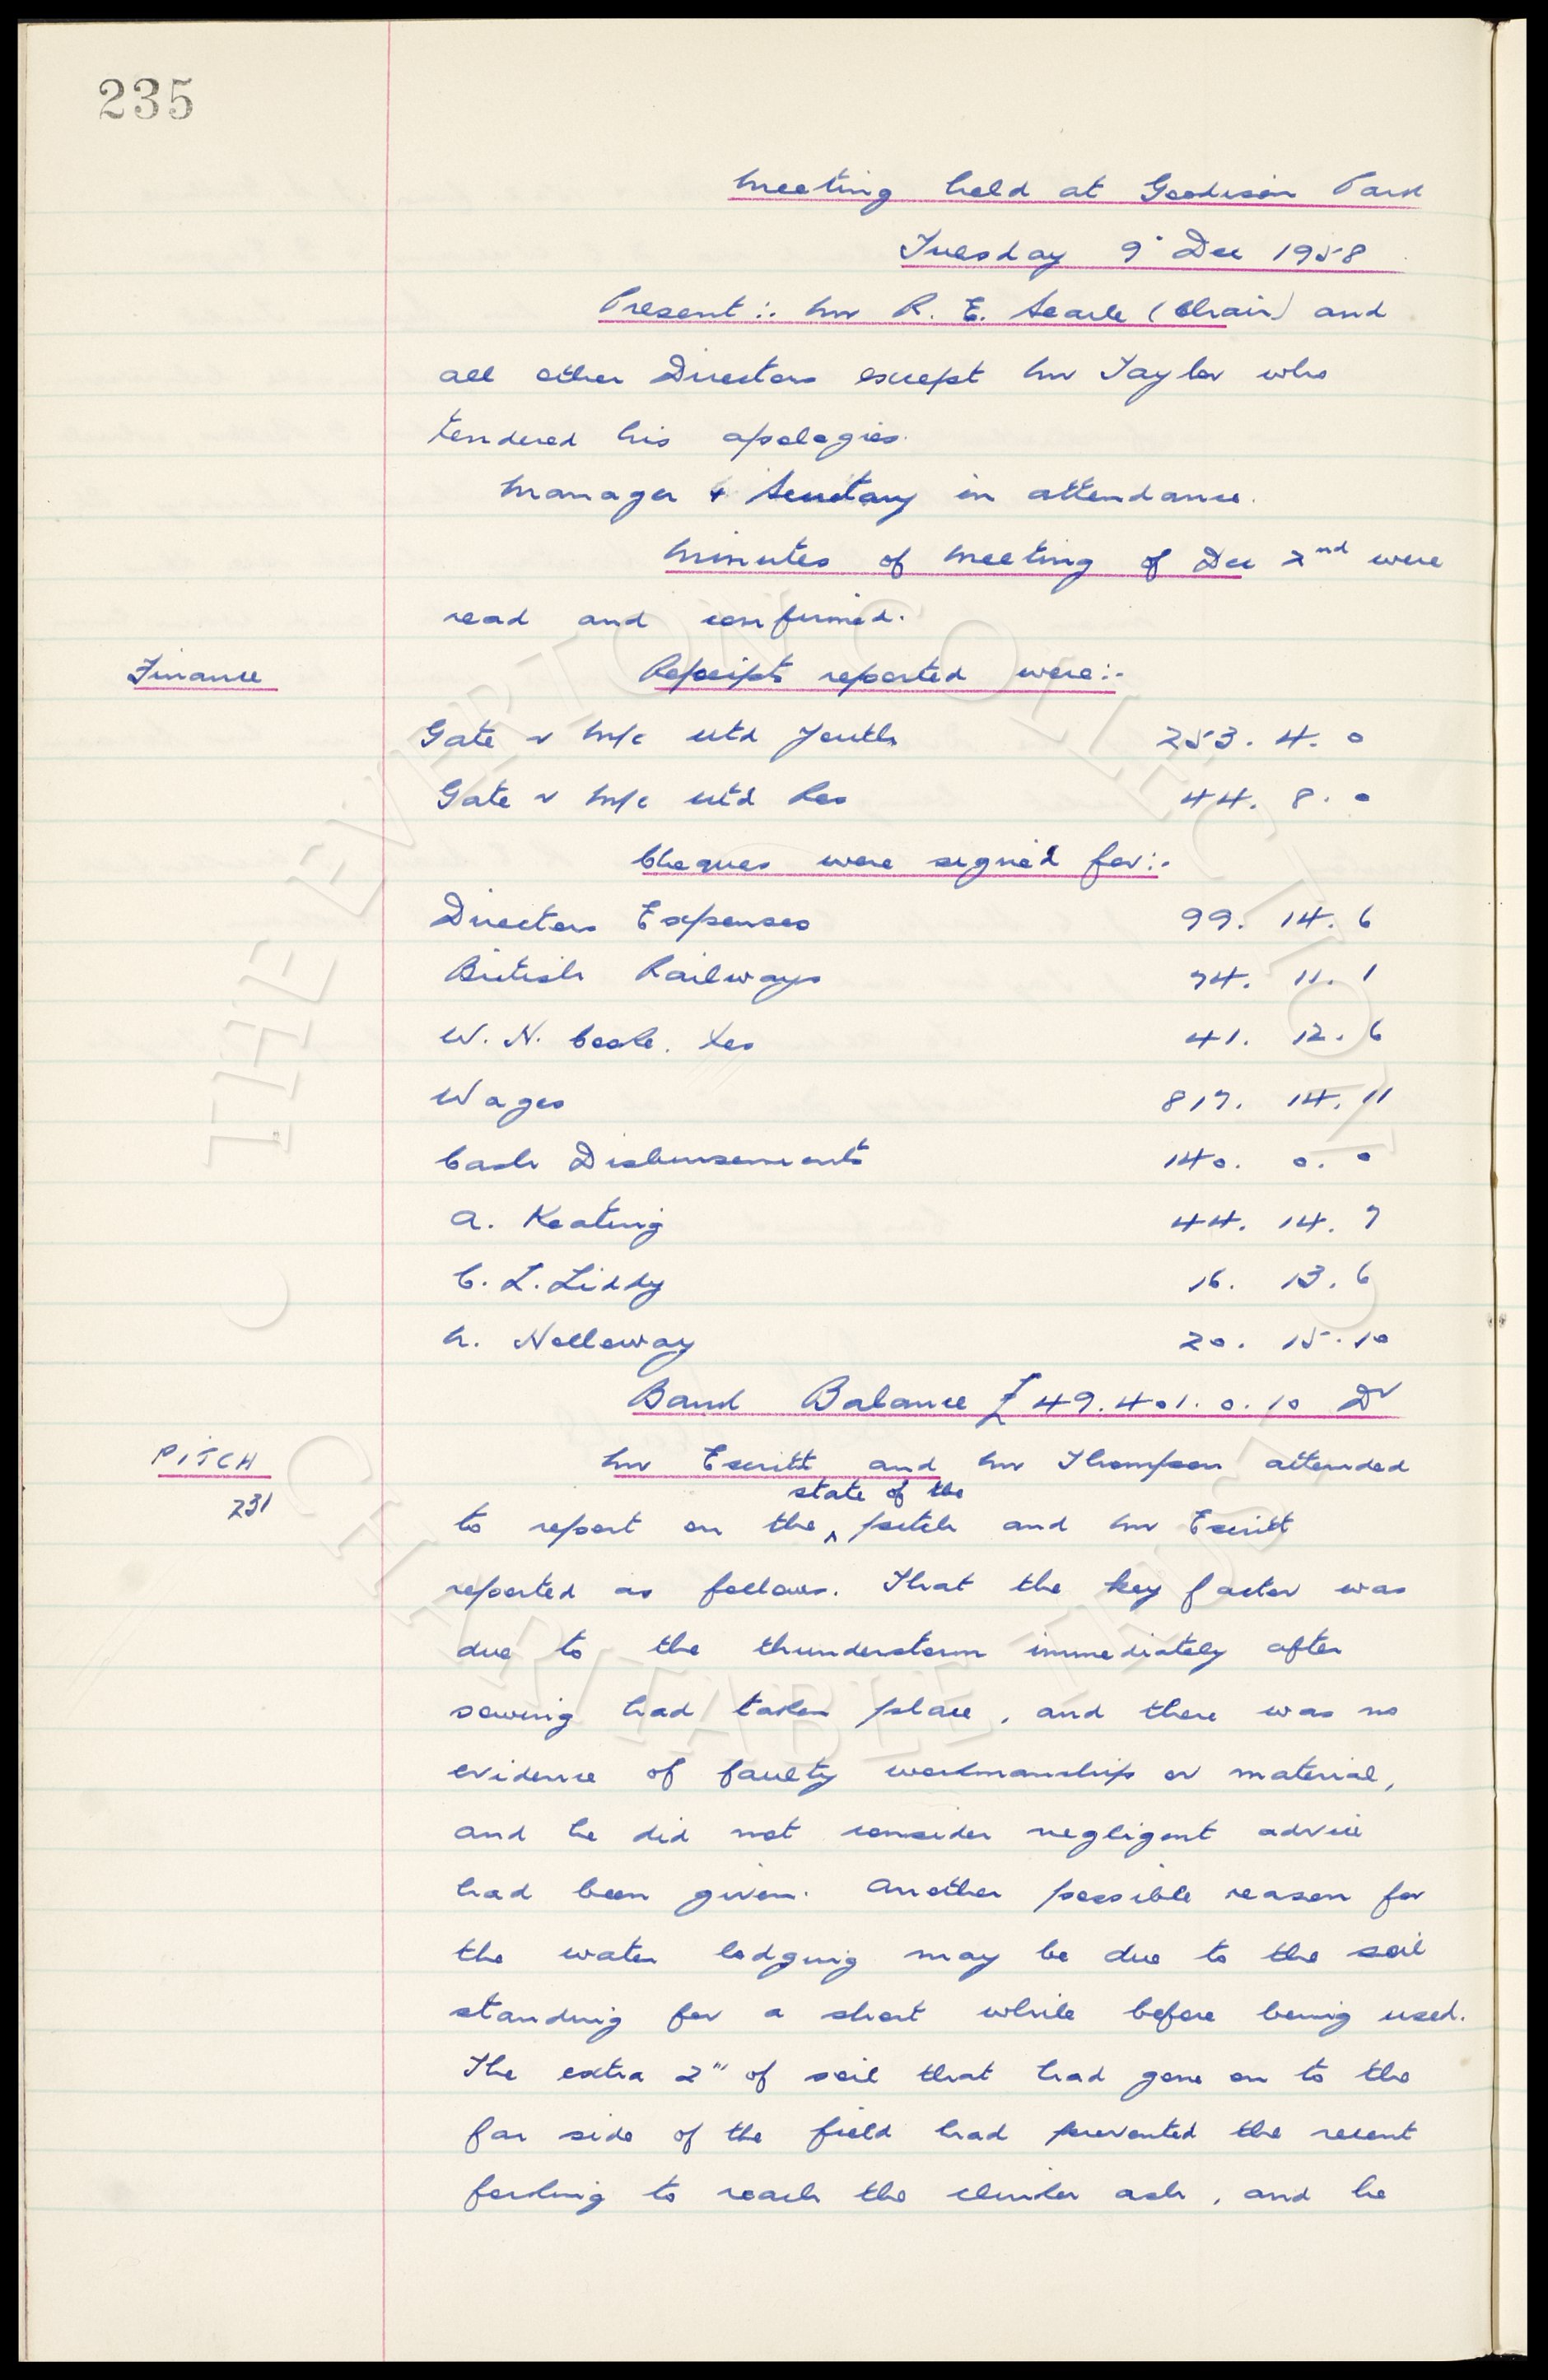 235
Meeting held at Goodison Park
Tuesday 9" Dec 1958
Present:. Mr R. E. Searle (Chair) and
all other Directors except Mr Taylor who
tendered his apologies.
Manager & Secretary in attendance.
Minutes of Meeting of Dec 2nd were
read and confirmed.
Finance
Receipts reported were:-
Gate v M/c Utd Youth 253. 4. 0
Gate v M/c Utd Res 44. 8. 0
Cheques were signed for:-
Directors Expenses 99. 14. 6
British Railways 74. 11. 1
W. H. 41. 12. 6
Wages 817. 14. 11
Cash Disbursements 140. 0. 0
A. Keating 44. 14. 7
C. L. Liddy 16. 13. 6
H. Holloway 20. 15. 10
Bank Balance £49.401. 0. 10 Dr
PITCH
231
Mr Escritt and Mr Thompson attended
state of the
to report on the pitch and Mr Escritt
reported as follows. That the key factor was
due to the thunderstorm immediately after
sowing had taken place, and there was no
evidence of faulty workmanship or material,
and he did not consider negligent advice
had been given. Another possible reason for
the water lodging may be due to the soil
standing for a short while before being used.
The extra 2" of soil that had gone on to the
far side of the field had prevented the recent
forking to reach the clinker ash, and he
THE EVERTON COLLECTION
CHARITABLE TRUST